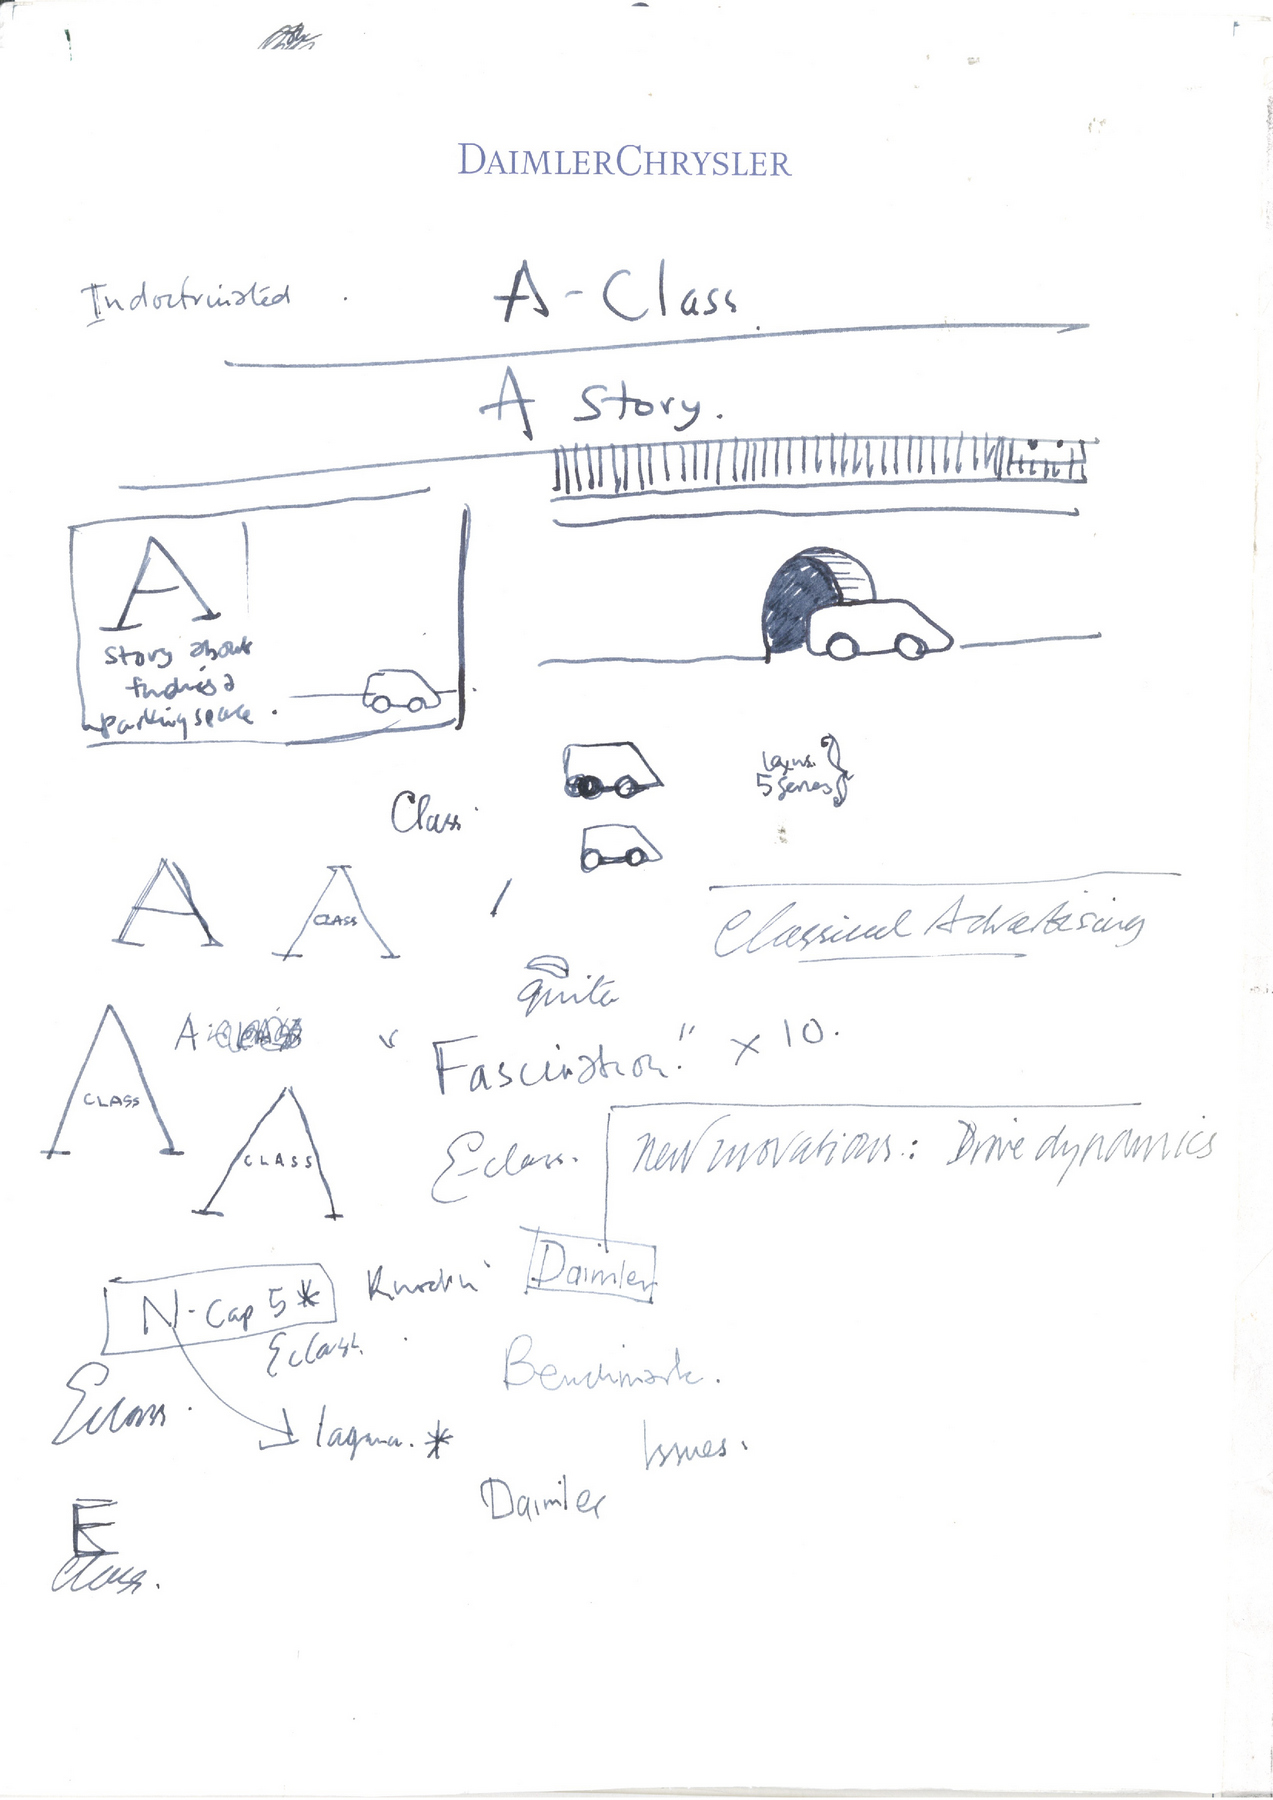 DAIMLERCHRYSLER
Indoctrinated
A-Class
A Story.
A
Story about
finding a
parking space.
Lexus
5 Series
Class
A
A
CLASS
Classical Advertising
quite
A
CLASS
A
"Fascination." x 10.
A
CLASS
E-class.
new inovations: Drive dynamics
Daimler
N-Cap 5*
Eclass.
Benchmark.
Eclass.
laguna. *
Issues.
Daimler
E
Class.